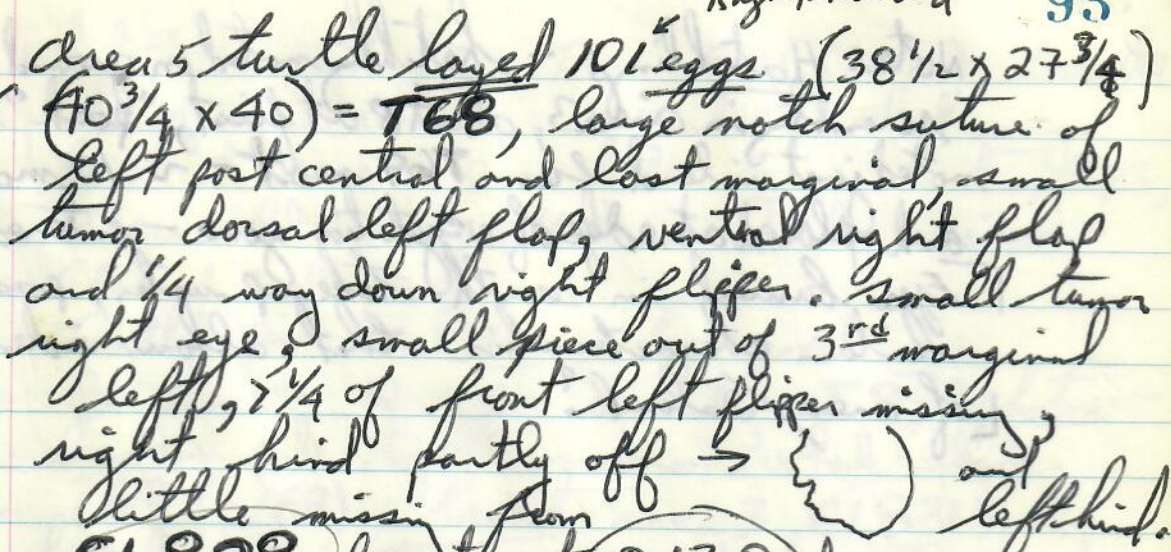 95
area 5 turtle layed 101 eggs (38 1/2 x 27 3/4)
(40 3/4 x 40) = T68, large notch suture of
left post central and last marginal, small
tumor dorsal left flap, ventral right flap
and 1/4 way down right flipper. small tumor
right eye, small piece out of 3rd marginal
left, 1/4 of front left flipper missing,
right hind partly off → and
little missing from left hind.